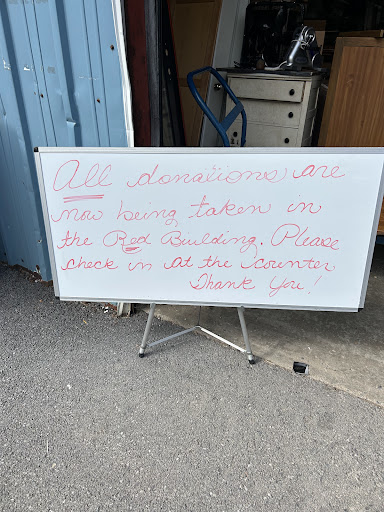 All donations are
now being taken in
the Red Building. Please
check in at the counter
Thank You!